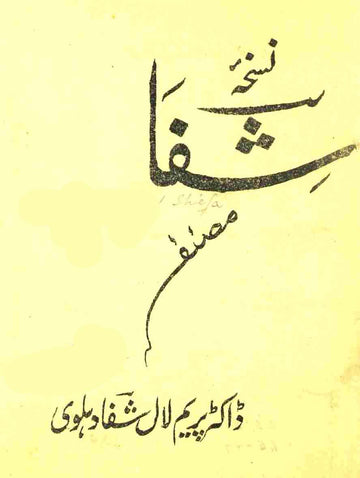 نسخۂ
شفا
Shifa
مصنف
ڈاکٹر پریم لال شفا دہلوی